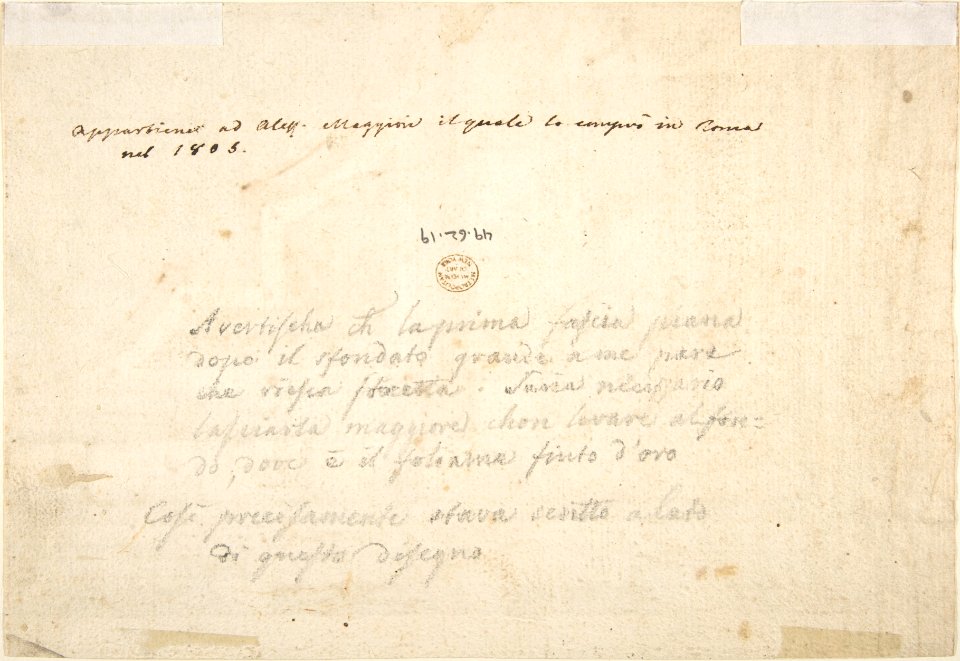 Appartiene ad Aless. Maggiori il quale lo comprò in Roma
nel 1805.
49.62.19
METROPOLITAN
MUSEUM
OF ART
NEW YORK
Avertischa ch la prima fascia piana
dopo il sfondato grande a me pare
che riesca stretta. Saria necessario
lasciarla maggiore chon levare al fon=
do dove è il fogliame finto d'oro
Così precesamente stava scritto a lato
di questo disegno